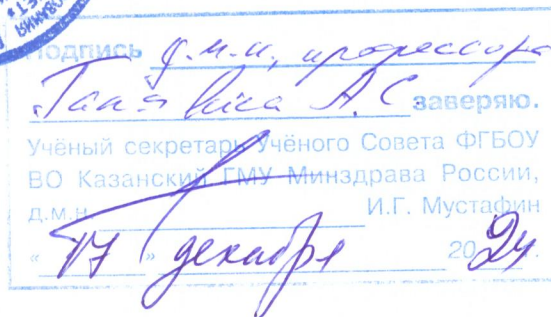 Подпись д.м.н., профессора
А.С заверяю.
Учёный секретарь Учёного Совета ФГБОУ
ВО Казанский ГМУ Минздрава России,
д.м.н. И.Г. Мустафин
«17» декабря 2024.